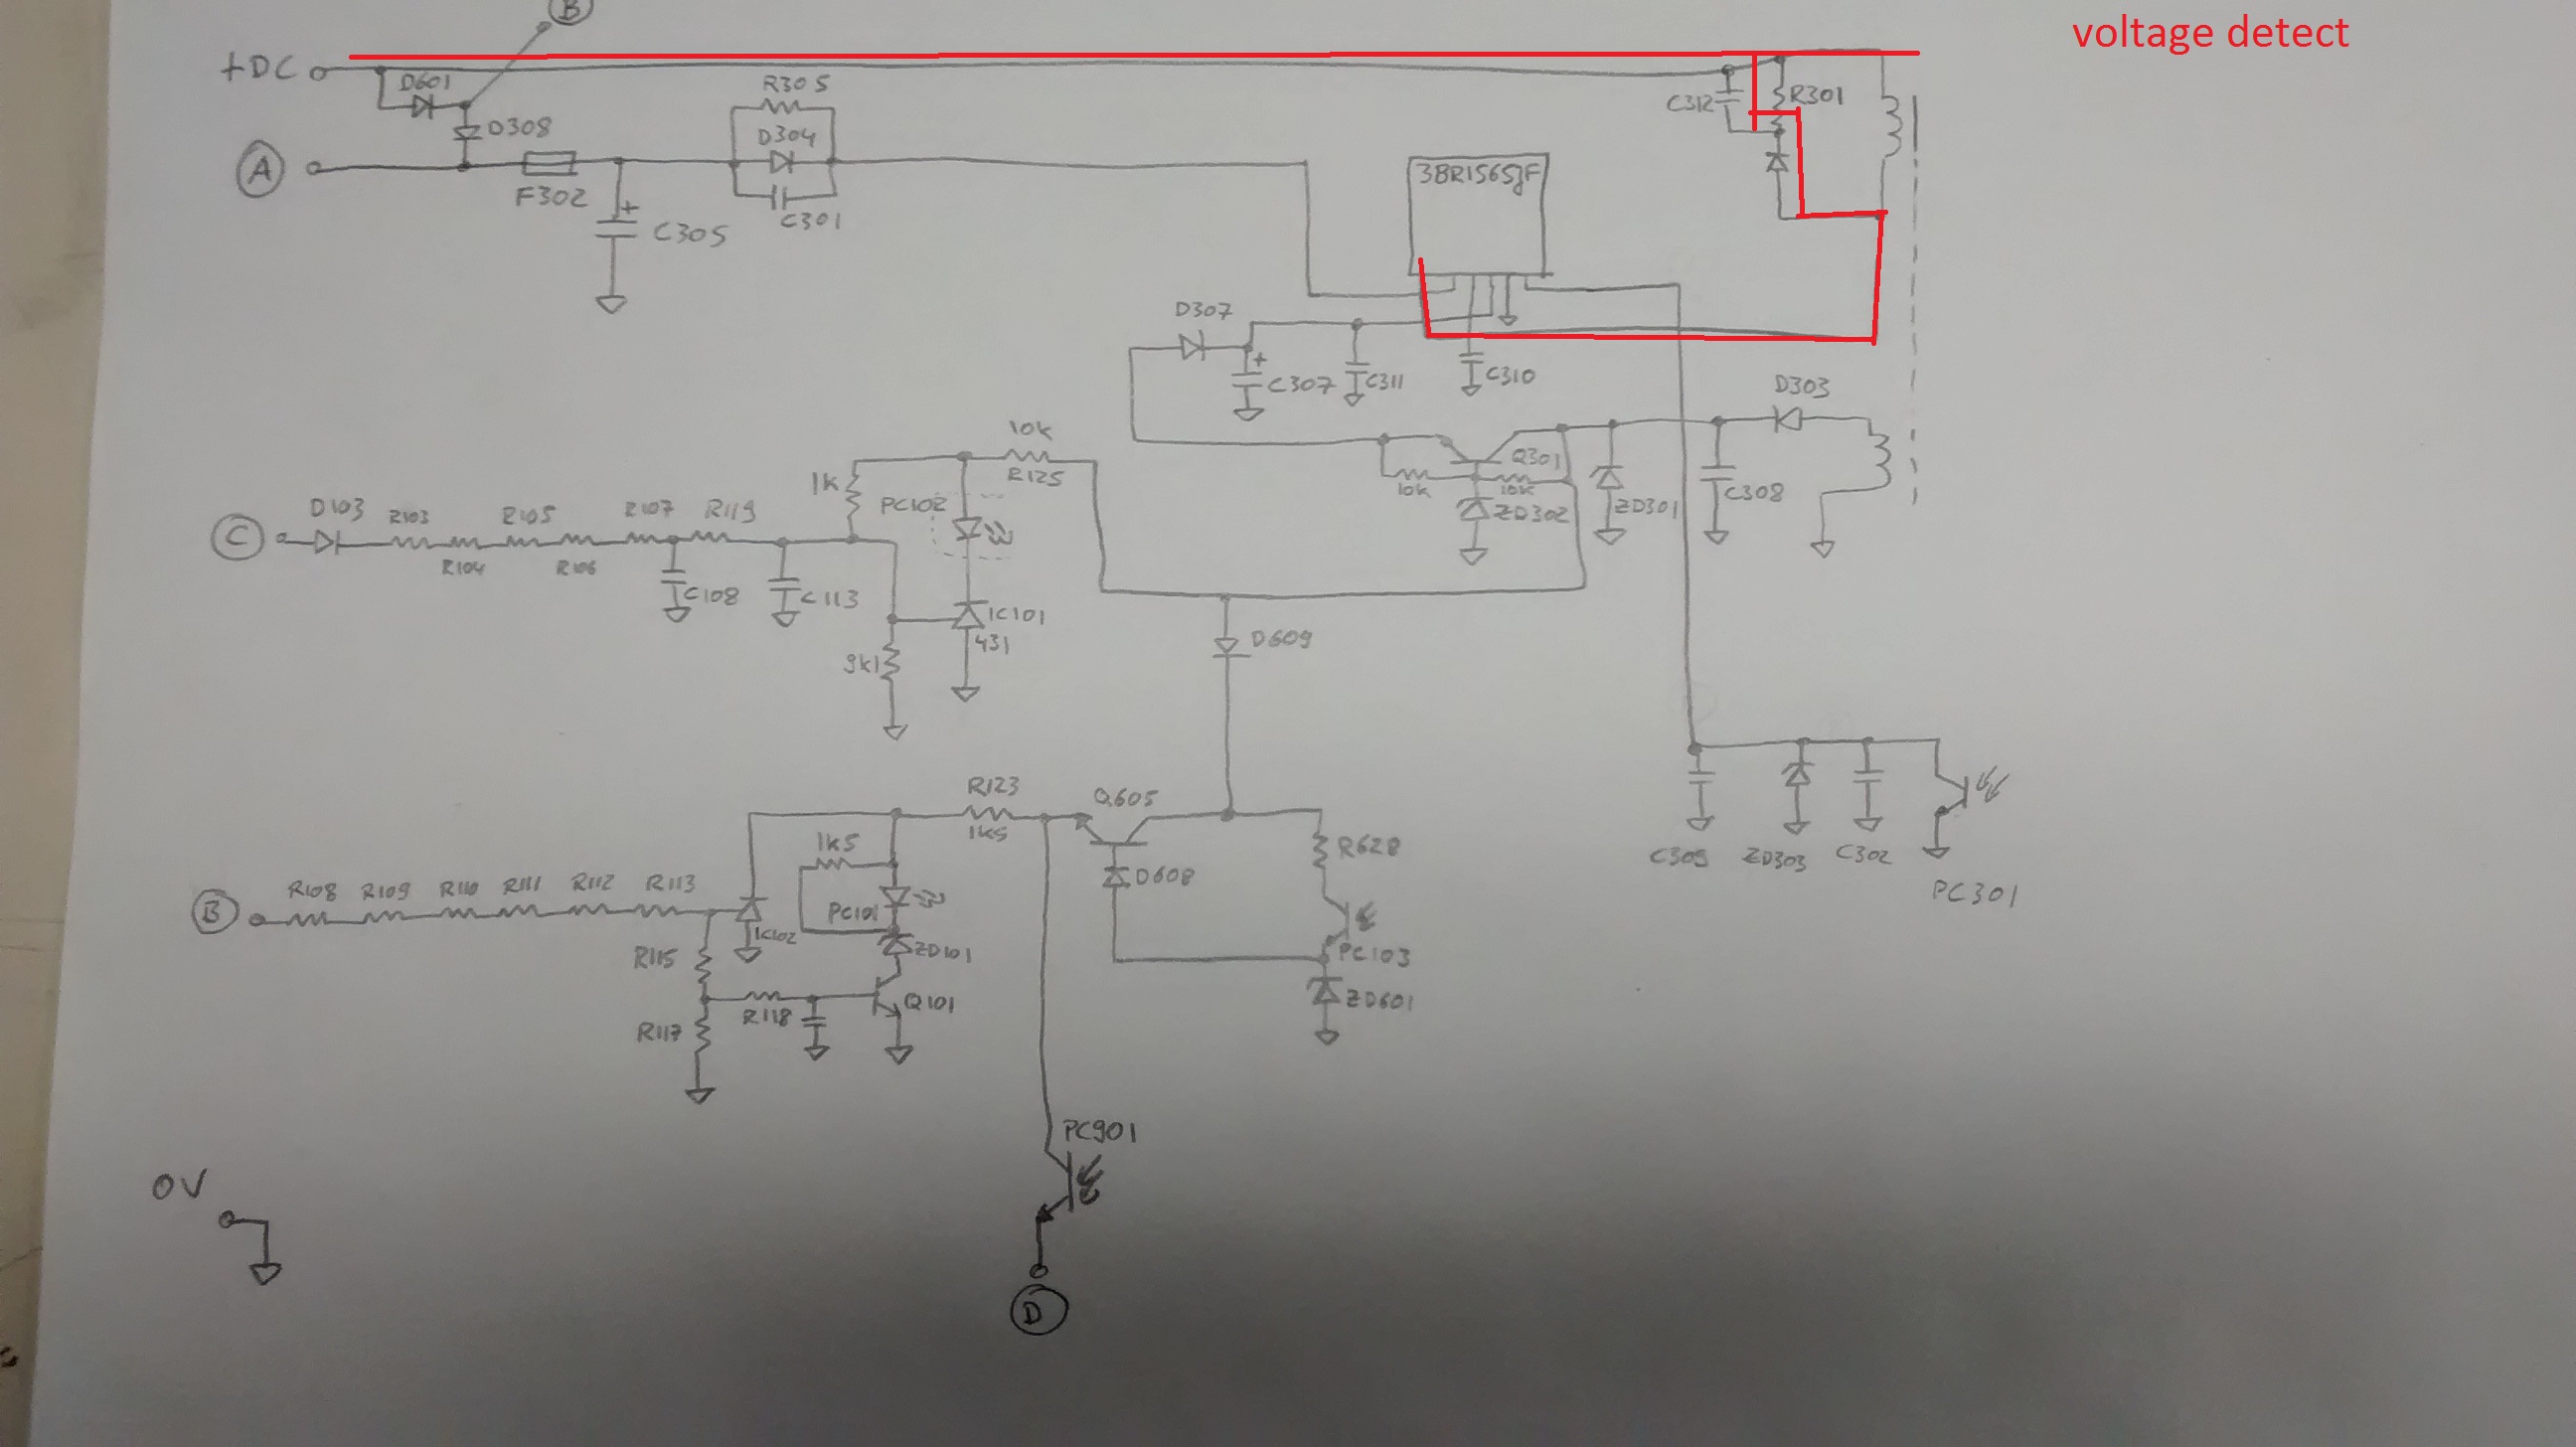 voltage detect
B
+DC
D601
R305
C312
R301
D308
D304
A
F302
C301
C305
3BR1565JF
D307
C307
C311
C310
D303
10k
R125
1k
PC102
Q301
10k
10k
ZD302
ZD301
C308
C
D103
R103
R105
R107
R119
R104
R106
C108
C113
IC101
431
9k1
D609
R123
1k5
Q605
1k5
R628
C309
ZD303
C302
PC301
D608
B
R108
R109
R110
R111
R112
R113
PC101
IC102
ZD101
PC103
R115
Q101
ZD601
R118
R117
PC901
0V
D